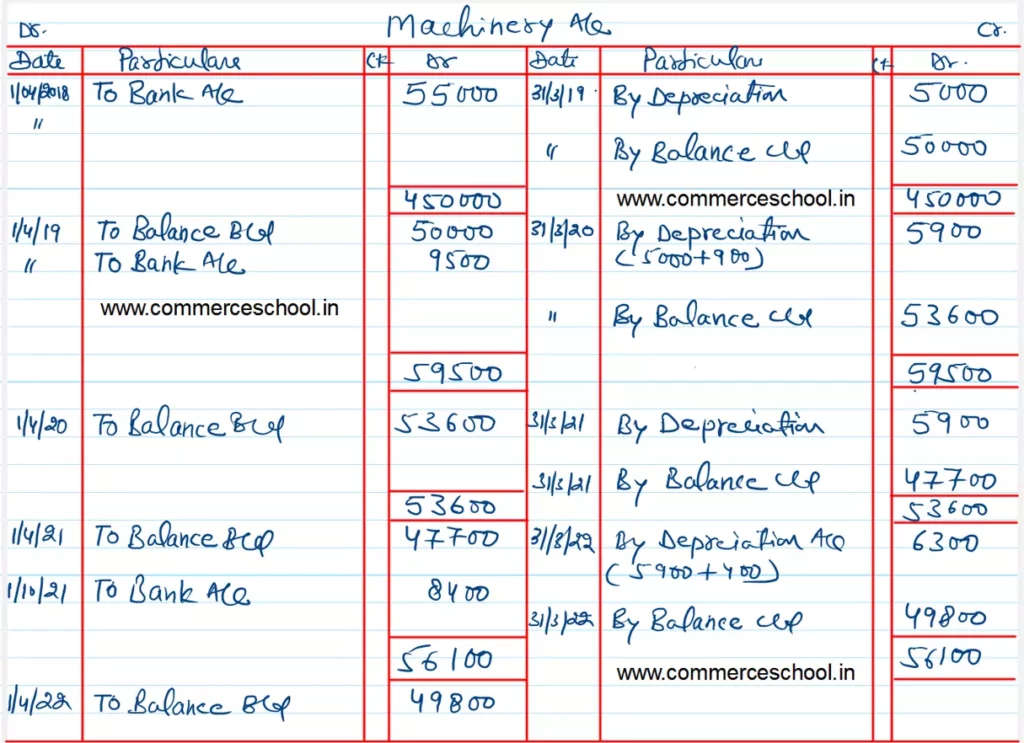 Dr. Machinery A/c Cr.
Date Particulars LF Dr Date Particulars LF Dr.
1/04/2018 To Bank A/c 55000 31/3/19 By Depreciation 5000
"
" By Balance c/d 50000
450000 www.commerceschool.in 450000
1/4/19 To Balance B/d 50000 31/3/20 By Depreciation 5900
" To Bank A/c 9500 (5000+900)
www.commerceschool.in
" By Balance c/d 53600
59500 59500
1/4/20 To Balance B/d 53600 31/3/21 By Depreciation 5900
31/3/21 By Balance c/d 47700
53600 53600
1/4/21 To Balance B/d 47700 31/3/22 By Depreciation A/c 6300
(5900+400)
1/10/21 To Bank A/c 8400
31/3/22 By Balance c/d 49800
56100 56100
www.commerceschool.in
1/4/22 To Balance B/d 49800